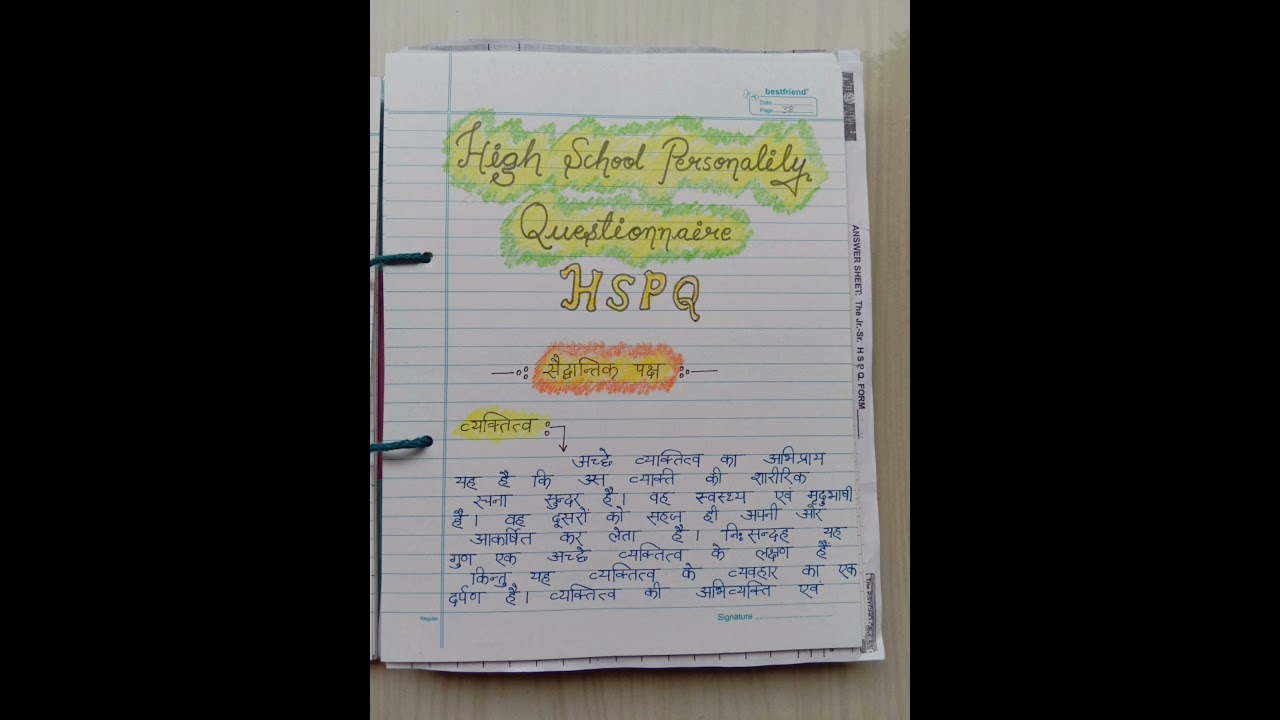 bestfriend
Date
Page 38
High School Personality
Questionnaire
HSPQ
सैद्धान्तिक पक्ष
व्यक्तित्व
अच्छे व्यक्तित्व का अभिप्राय
यह है कि उस व्यक्ति की शारीरिक
रचना सुन्दर है। वह स्वस्थ्य एवं मृदुभाषी
है। वह दूसरों को सहज ही अपनी और
आकर्षित कर लेता है। निःसन्देह यह
गुण एक अच्छे व्यक्तित्व के लक्षण हैं
किन्तु यह व्यक्तित्व के व्यवहार का एक
दर्पण है। व्यक्तित्व की अभिव्यक्ति एवं
Regular
Signature
ANSWER SHEET: The Jr.-Sr. H S P Q. FORM